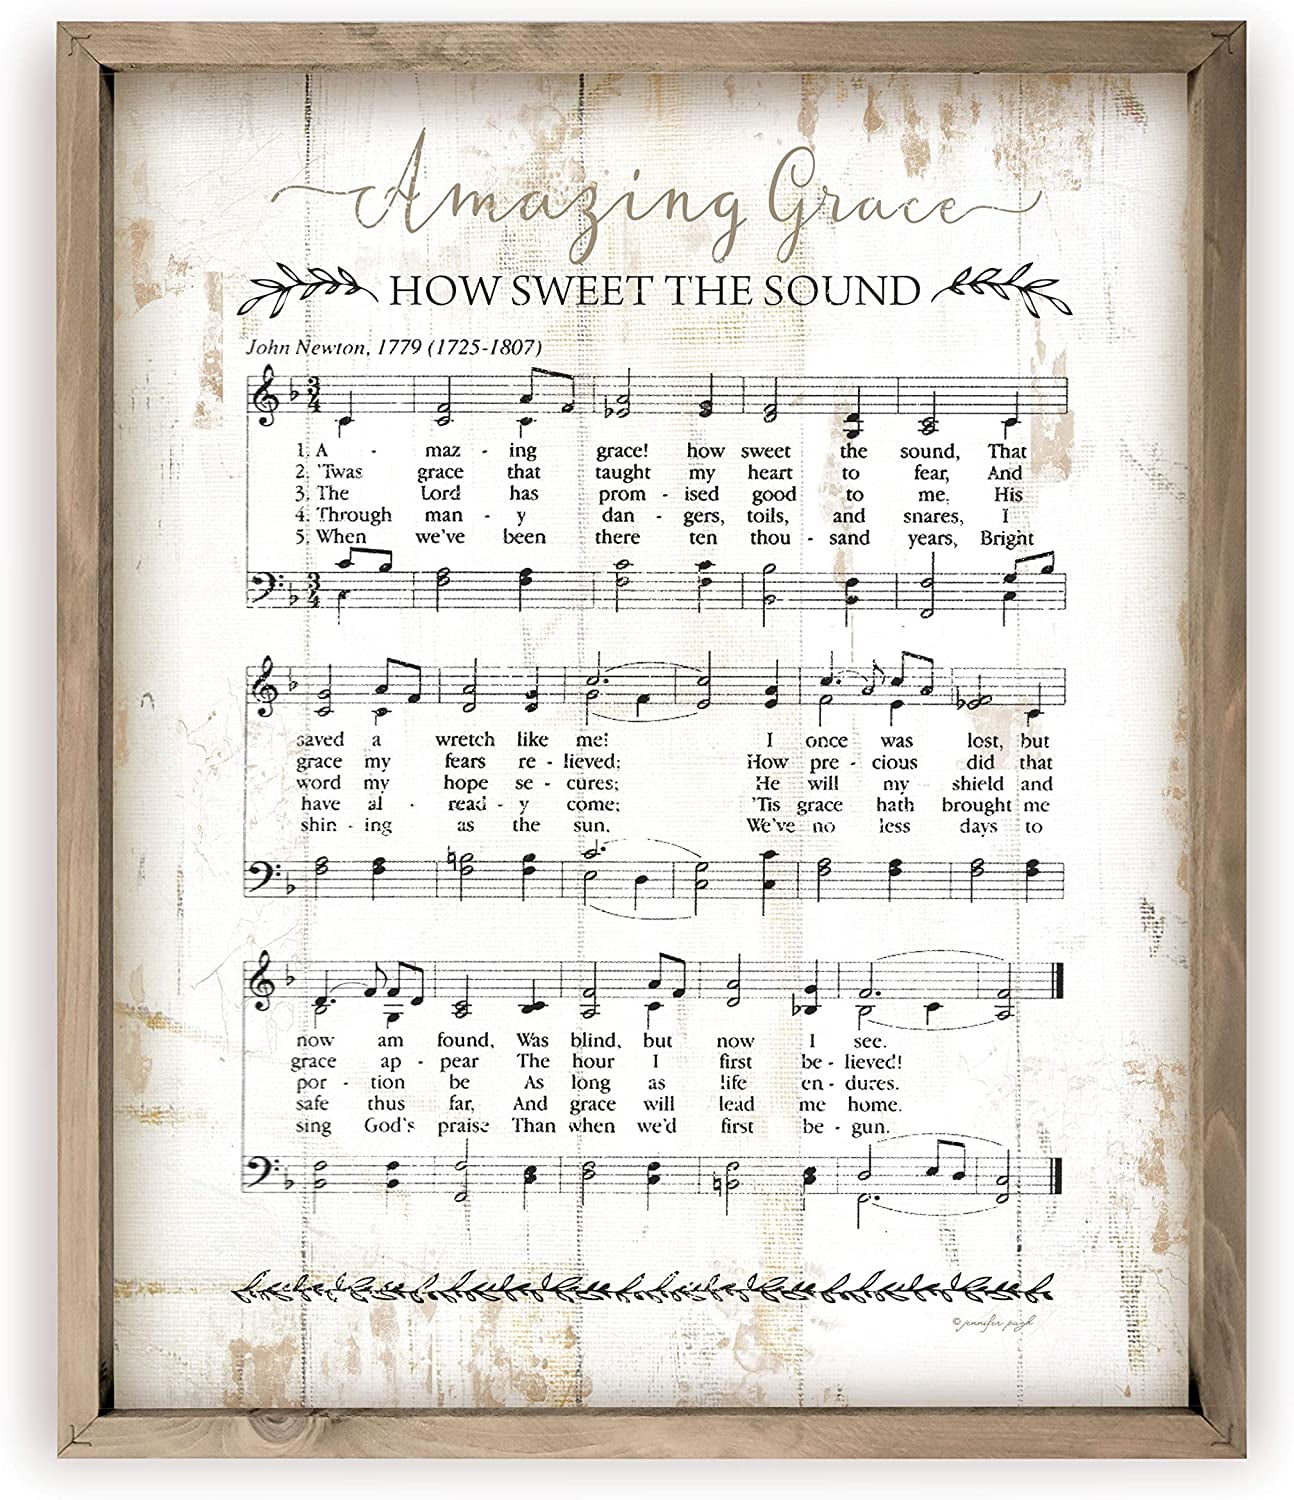 Amazing Grace
HOW SWEET THE SOUND
John Newton, 1779 (1725-1807)
1. A - maz - ing grace! how sweet the sound, That
2. 'Twas grace that taught my heart to fear, And
3. The Lord has prom - ised good to me. His
4. Through man - y dan - gers, toils, and snares, I
5. When we've been there ten thou - sand years, Bright
saved a wretch like me! I once was lost, but
grace my fears re - lieved; How pre - cious did that
word my hope se - cures; He will my shield and
have al - read - y come; 'Tis grace hath brought me
shin - ing as the sun, We've no less days to
now am found, Was blind, but now I see.
grace ap - pear The hour I first be - lieved!
por - tion be As long as life en - dures.
safe thus far, And grace will lead me home.
sing God's praise Than when we'd first be - gun.
© jennifer pugh